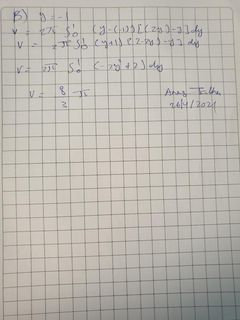 B) y = -1
V = 2π ∫₀¹ (y-(-1)) [(2-y)-y] dy
V = 2π ∫₀¹ (y+1) [2-2y] dy
V = 2π ∫₀¹ (-2y²+2) dy
V = 8/3 π
26/4/2021